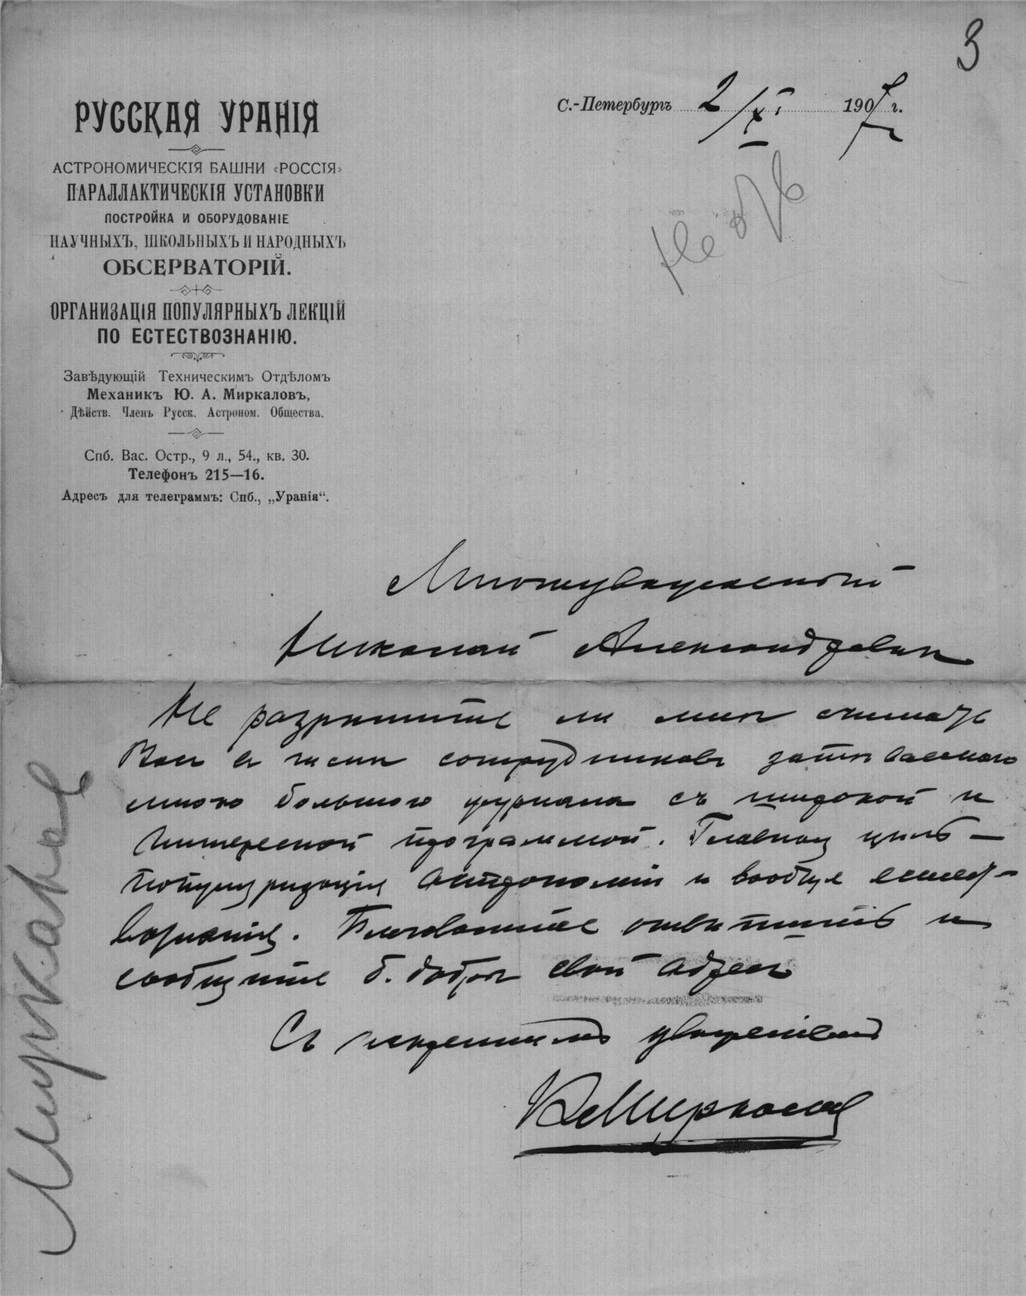 3
РУССКАЯ УРАНІЯ
АСТРОНОМИЧЕСКІЯ БАШНИ «РОССІЯ»
ПАРАЛЛАКТИЧЕСКІЯ УСТАНОВКИ
ПОСТРОЙКА И ОБОРУДОВАНІЕ
НАУЧНЫХЪ, ШКОЛЬНЫХЪ И НАРОДНЫХЪ
ОБСЕРВАТОРІЙ.
ОРГАНИЗАЦІЯ ПОПУЛЯРНЫХЪ ЛЕКЦІЙ
ПО ЕСТЕСТВОЗНАНІЮ.
Завѣдующій Техническимъ Отдѣломъ
Механикъ Ю. А. Миркаловъ,
Дѣйств. Членъ Русск. Астроном. Общества.
Спб. Вас. Остр., 9 л., 54., кв. 30.
Телефонъ 215—16.
Адресъ для телеграммъ: Спб., „Уранія“.
С.-Петербургъ 2/XI 1907 г.
Многоуважаемый
Николай Александрович
Не разрѣшите ли мнѣ считать
Вас в числѣ сотрудниковъ затѣваемого
мною большого журнала съ широкой и
интересной программой. Главная цѣль —
популяризація астрономіи и вообще естест-
вознанія. Благоволите отвѣтить и
сообщите б. добры свой адресъ
Съ искреннимъ уваженіемъ
Ю Миркалов
Миркалов